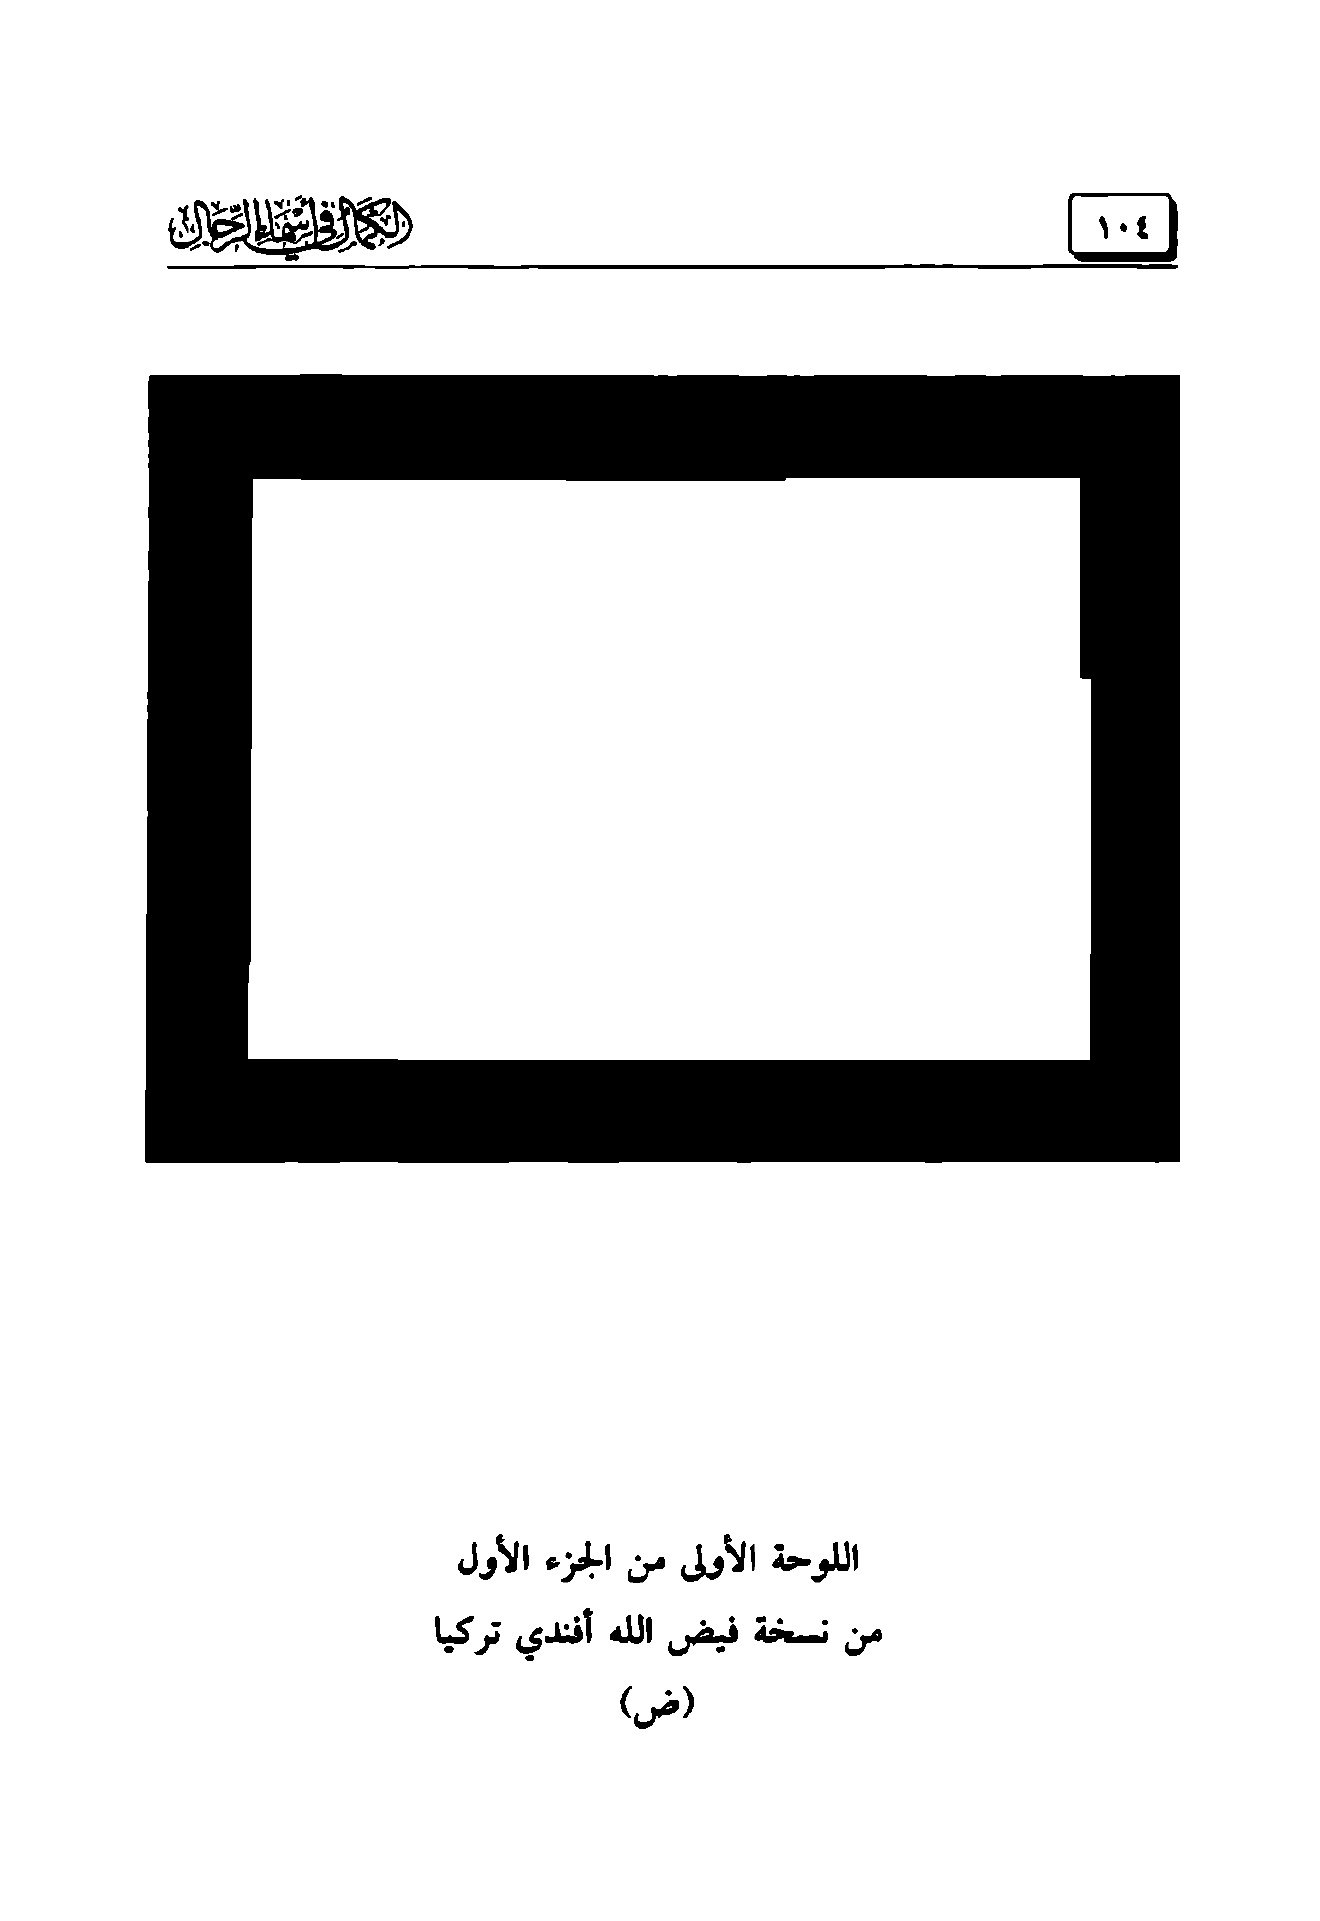 ١٠٤
الكمال في أسماء الرجال
اللوحة الأولى من الجزء الأول
من نسخة فيض الله أفندي تركيا
(ض)